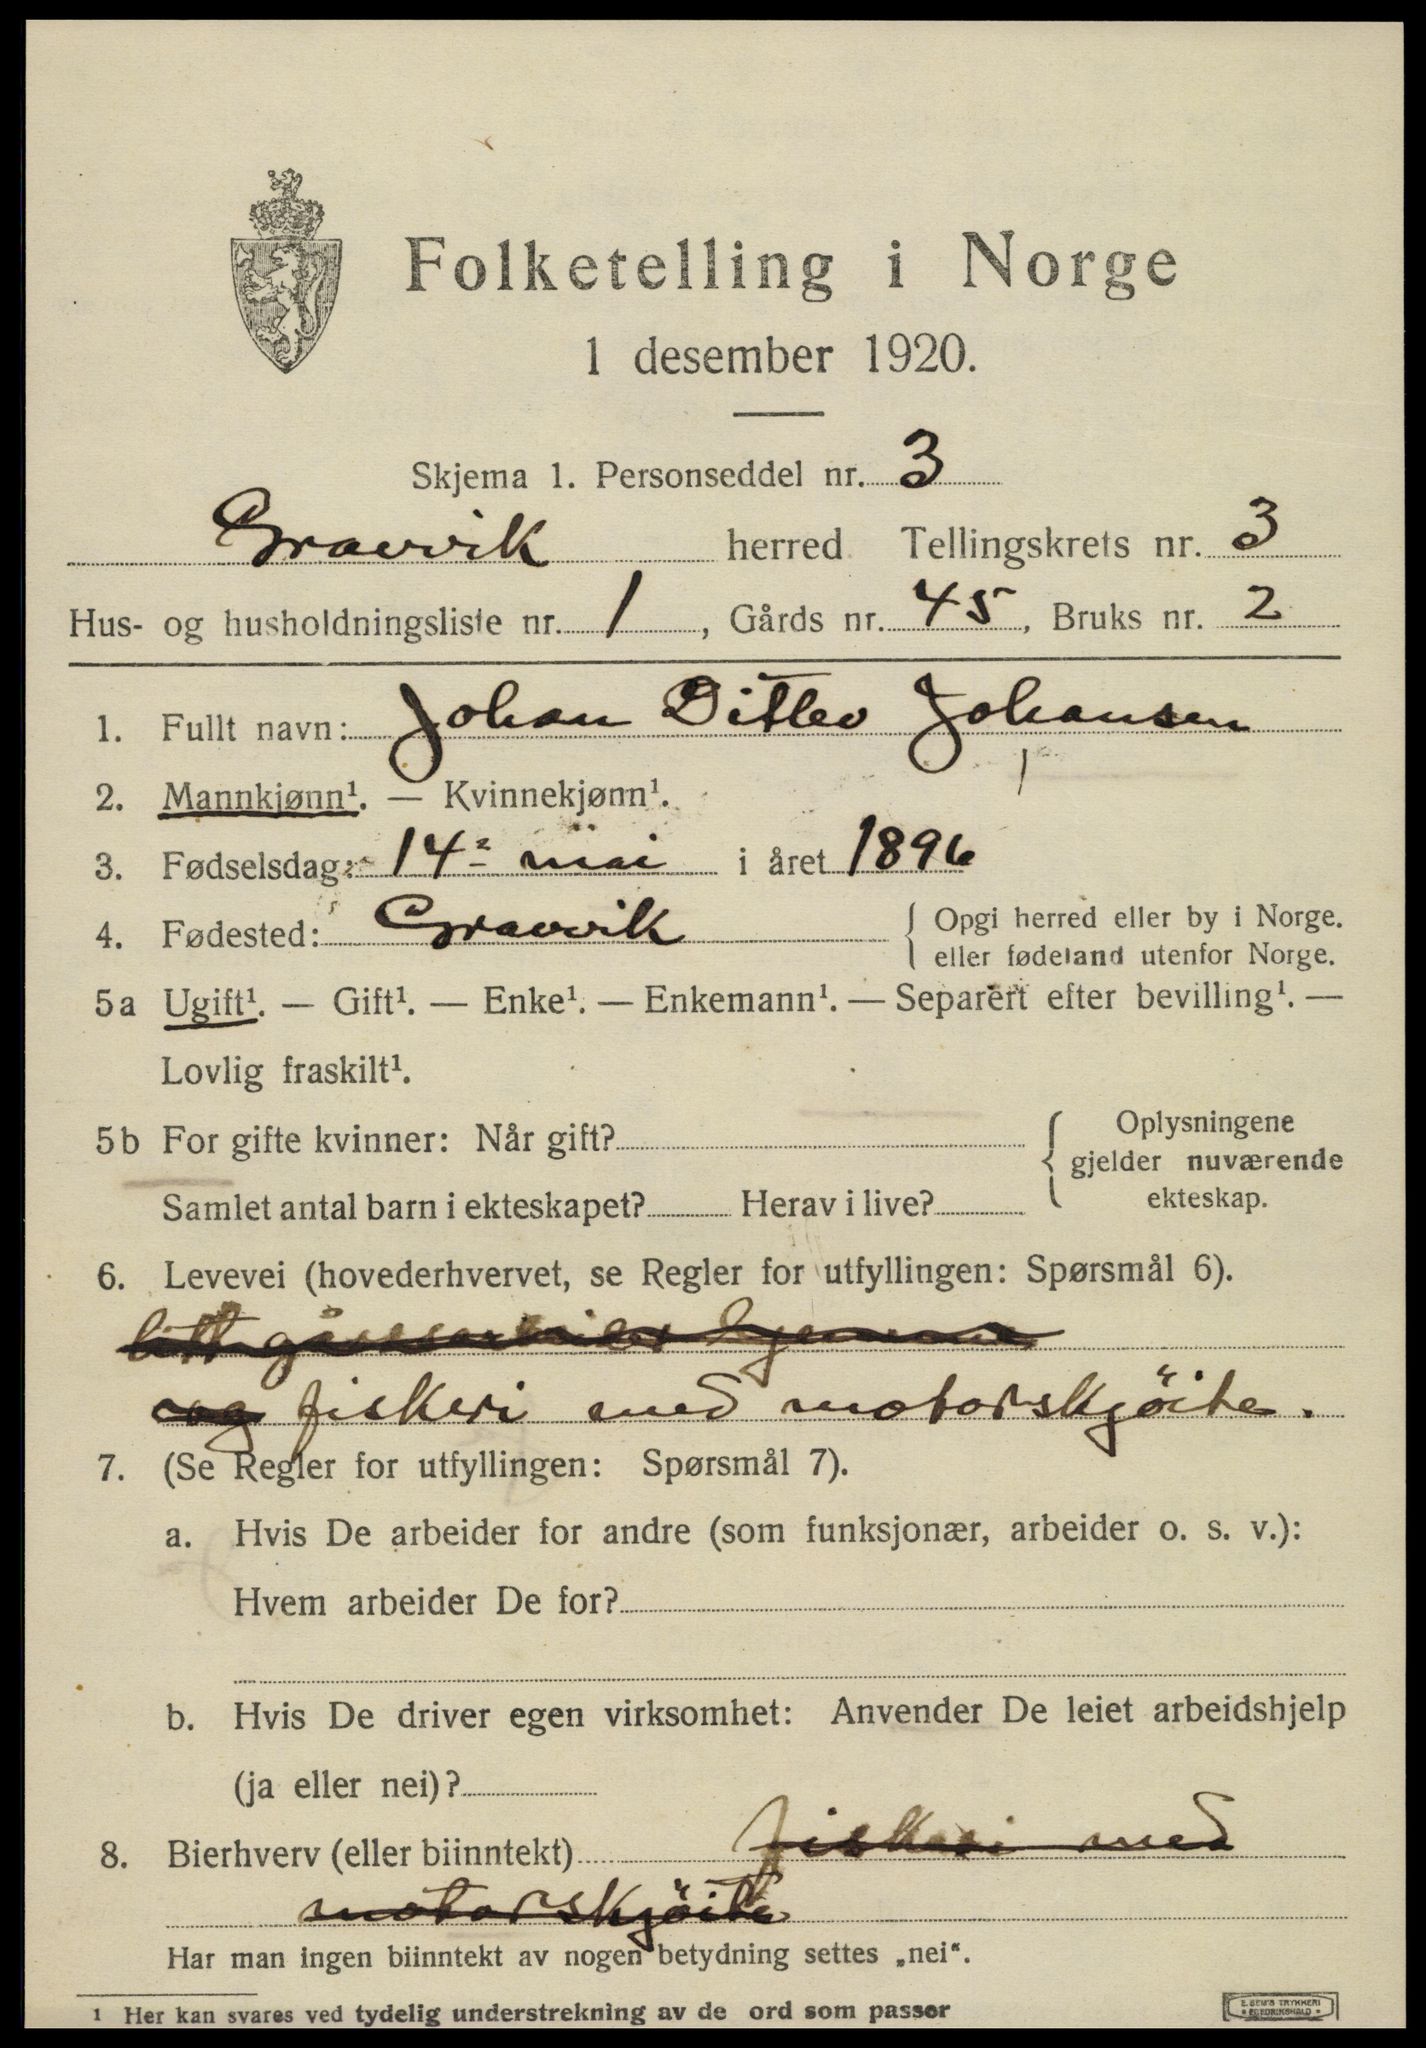 Folketelling i Norge
1 desember 1920.
Skjema 1. Personseddel nr. 3
Gravvik herred Tellingskrets nr. 3
Hus- og husholdningsliste nr. 1, Gårds nr. 45, Bruks nr. 2
1. Fullt navn: Johan Ditlev Johansen
2. Mannkjønn¹. — Kvinnekjønn¹.
3. Fødselsdag: 14de mai i året 1896
4. Fødested: Gravvik { Opgi herred eller by i Norge.
eller fødeland utenfor Norge.
5a Ugift¹. — Gift¹. — Enke¹. — Enkemann¹. — Separert efter bevilling¹. —
Lovlig fraskilt¹.
5b For gifte kvinner: Når gift? { Oplysningene
gjelder nuværende
Samlet antal barn i ekteskapet? Herav i live? ekteskap.
6. Levevei (hovederhvervet, se Regler for utfyllingen: Spørsmål 6).
litt gårdsarbeider hjemme
og fiskeri med motorskjöite.
7. (Se Regler for utfyllingen: Spørsmål 7).
a. Hvis De arbeider for andre (som funksjonær, arbeider o. s. v.):
Hvem arbeider De for?
b. Hvis De driver egen virksomhet: Anvender De leiet arbeidshjelp
(ja eller nei)?
8. Bierhverv (eller biinntekt) fiskeri med
motorskjöite
Har man ingen biinntekt av nogen betydning settes „nei“.
1 Her kan svares ved tydelig understrekning av de ord som passer
E. SEM'S TRYKKERI
FREDRIKSHALD